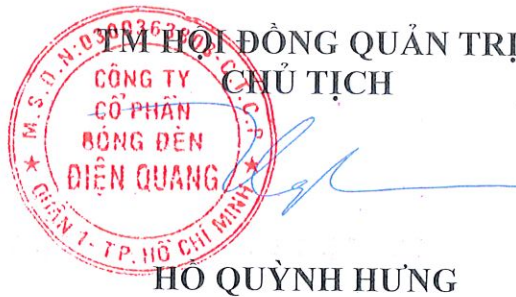 TM HỘI ĐỒNG QUẢN TRỊ
CHỦ TỊCH
M.S.D.N:0300363808-C.T.C.P
CÔNG TY
CỔ PHẦN
BÓNG ĐÈN
ĐIỆN QUANG
QUẬN 1 - T.P. HỒ CHÍ MINH
HỒ QUỲNH HƯNG